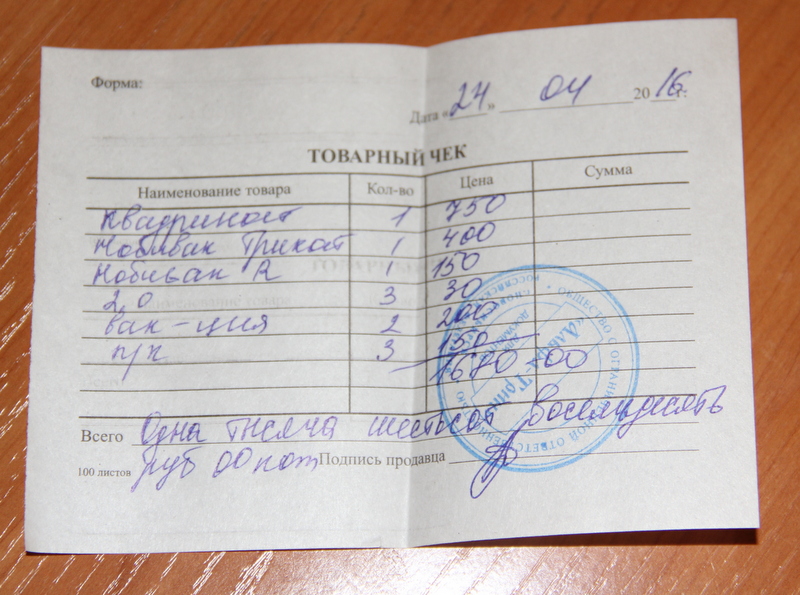 Форма:
Дата «24» 04 2016 г.
ТОВАРНЫЙ ЧЕК
Наименование товара Кол-во Цена Сумма
Квадрикат 1 750
Нобивак Трикат 1 400
Нобивак R 1 150
2,0 3 30
вак-ция 2 200
п/к 3 150
1680-00
Всего Одна тысяча шестьсот восемьдесят
100 листов руб 00 коп Подпись продавца
ОБЩЕСТВО С ОГРАНИЧЕННОЙ ОТВЕТСТВЕННОСТЬЮ